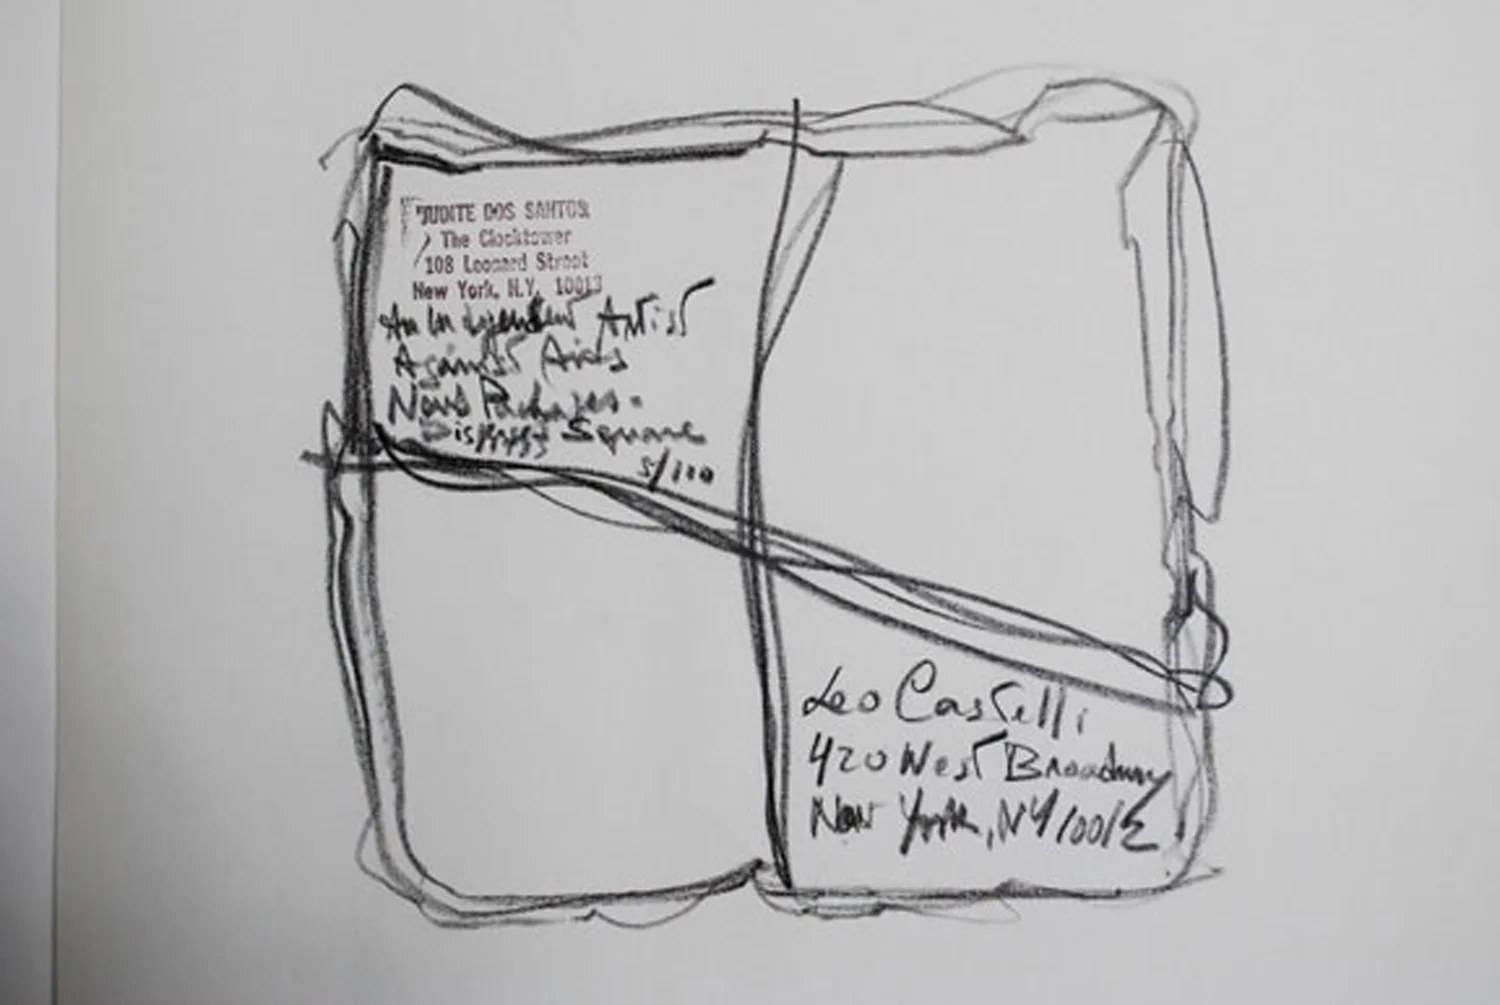 JUDITE DOS SANTOS
The Clocktower
108 Leonard Street
New York, N.Y. 10013
An Independent Artist
Against Aids
News Packages -
Square
5/110
Leo Castelli
420 West Broadway
New York, NY 10012